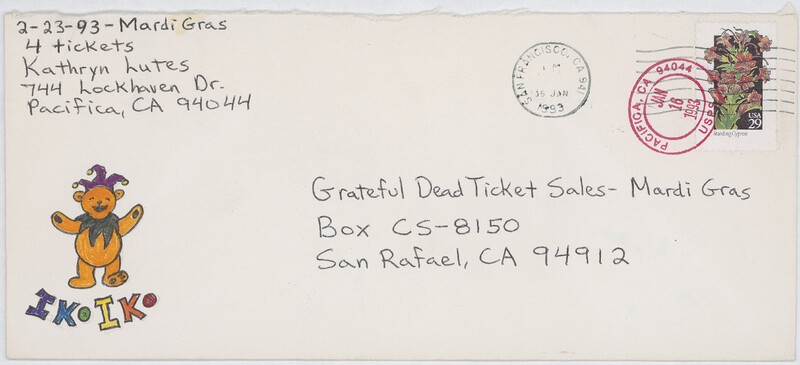 2-23-93-Mardi Gras
4 tickets
Kathryn Lutes
744 Lockhaven Dr.
Pacifica, CA 94044
SAN FRANCISCO, CA 941
16 JAN
1993
PACIFICA, CA 94044
JAN
16
1993
USPS
USA
29
Standing Cypress
Grateful Dead Ticket Sales- Mardi Gras
Box CS-8150
San Rafael, CA 94912
IKO IKO